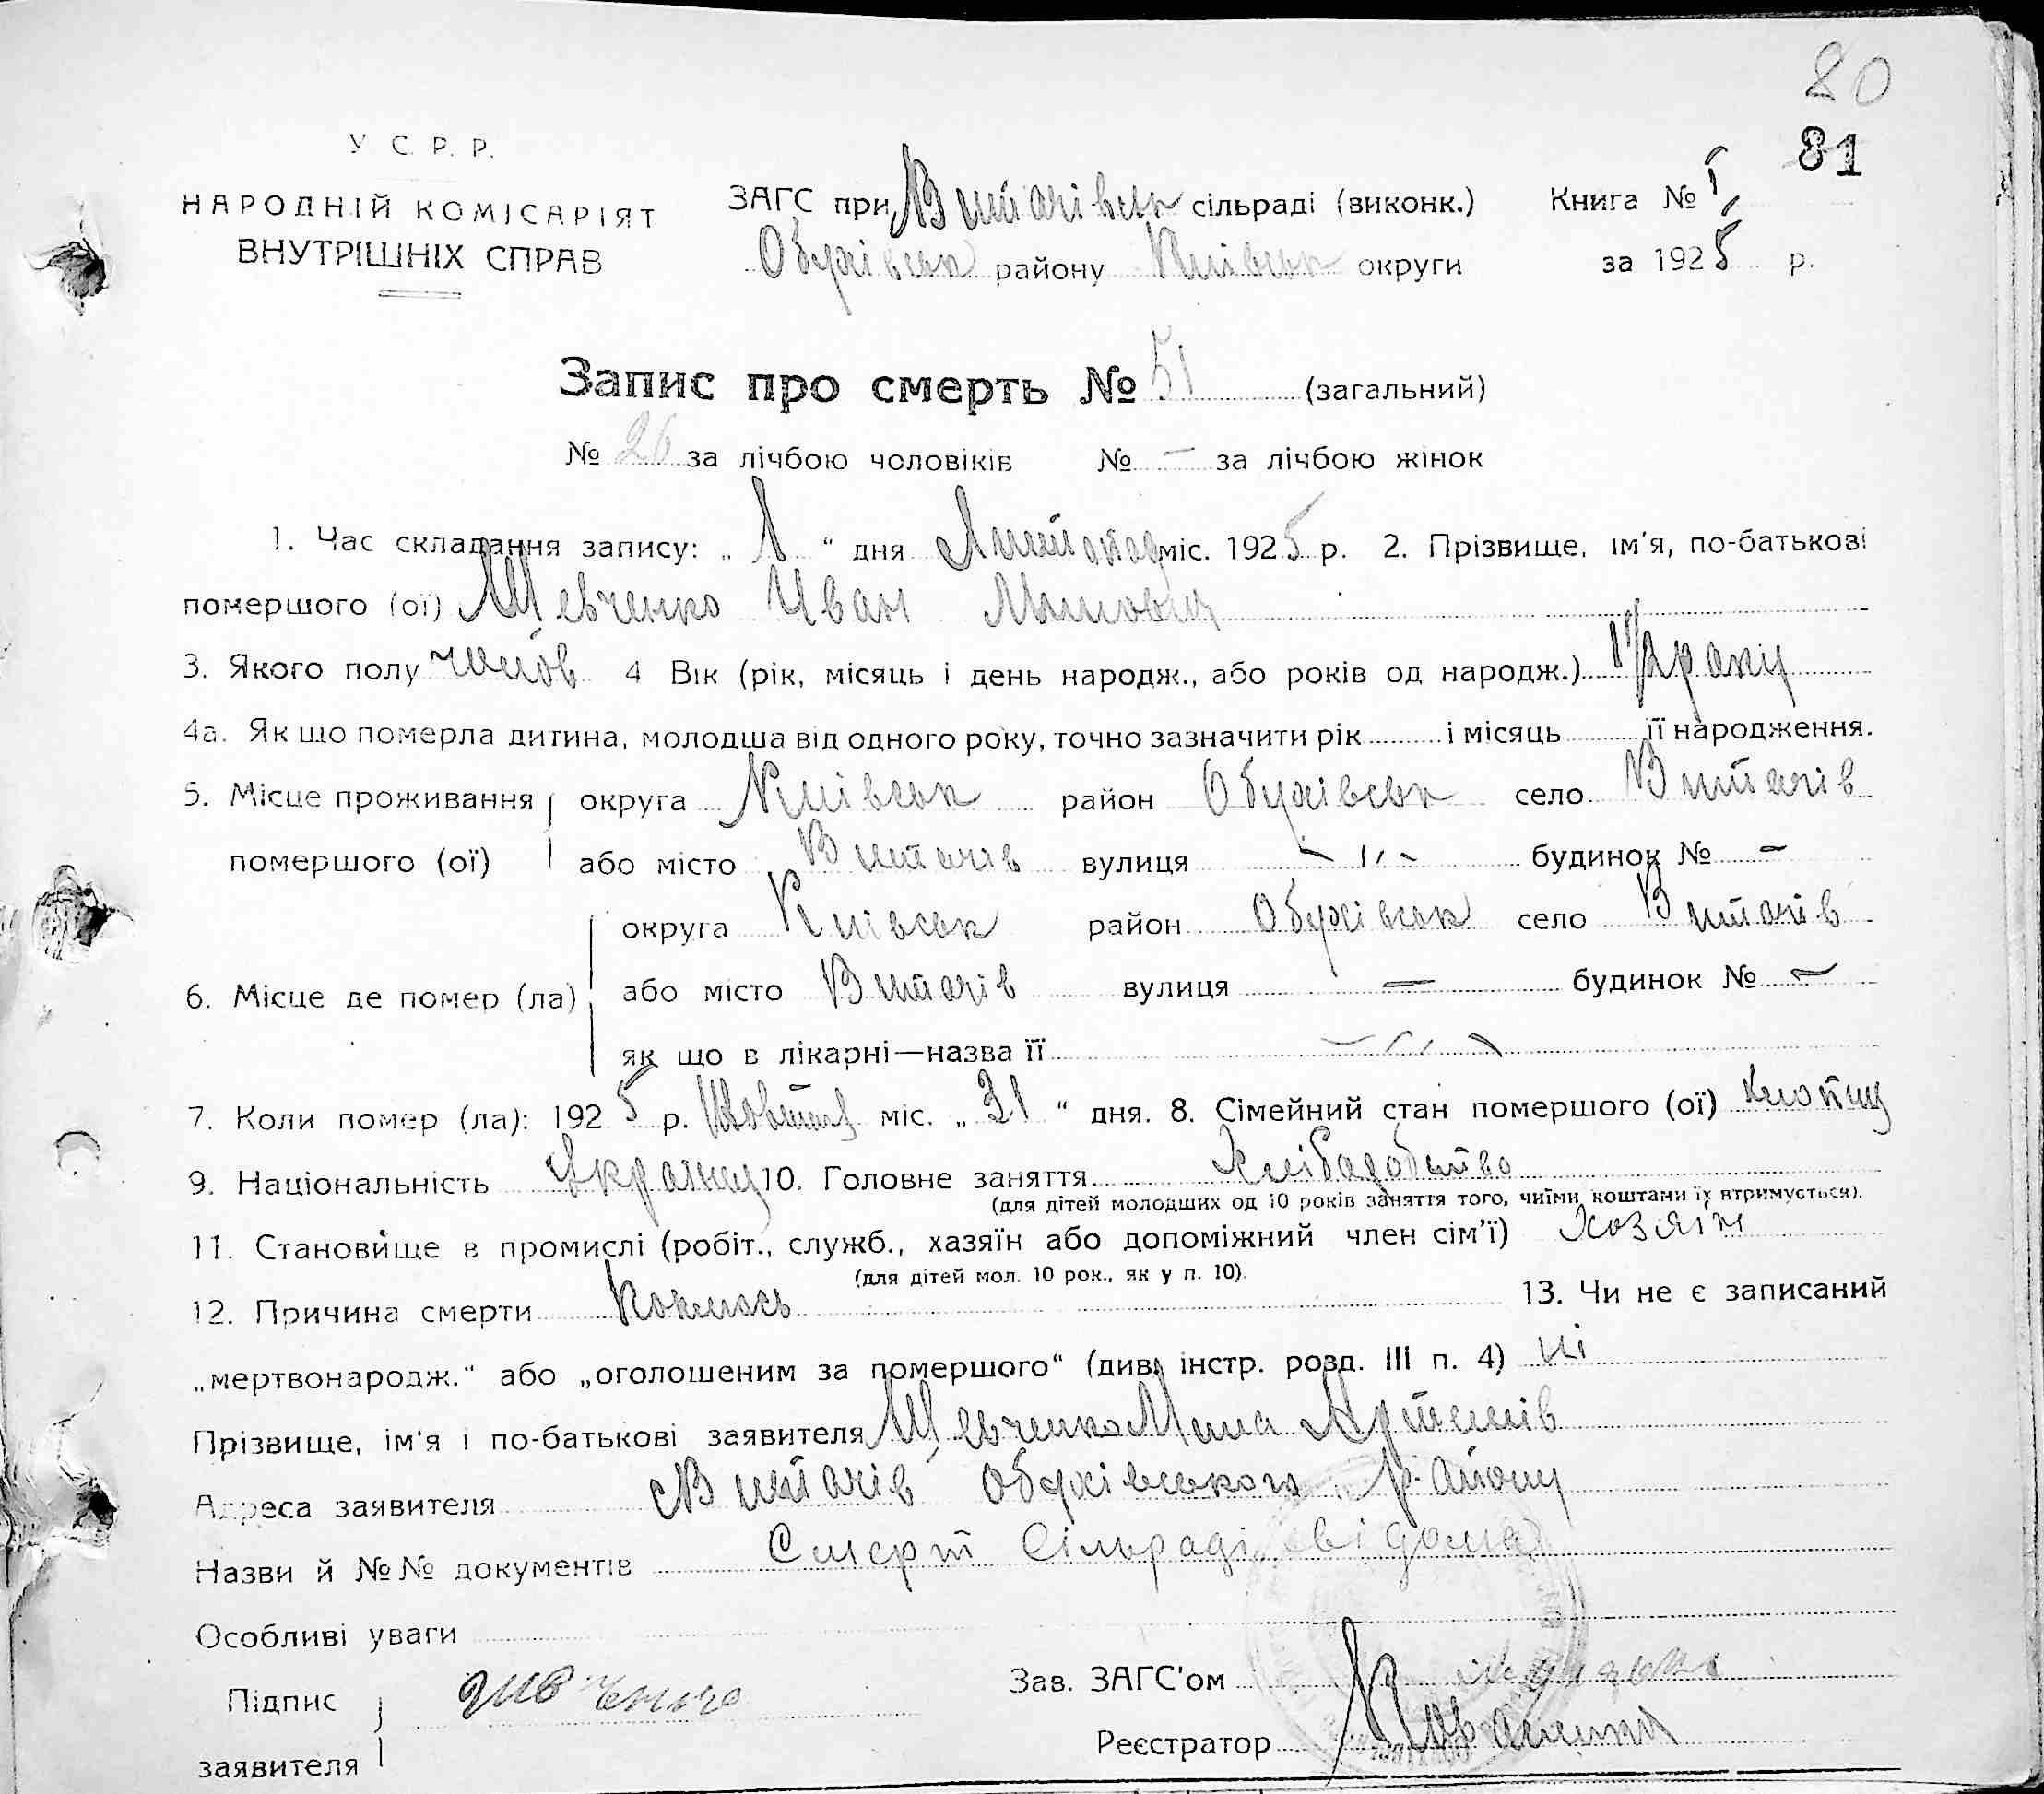 80
81
У С. Р. Р.
НАРОДНІЙ КОМІСАРІЯТ
ВНУТРІШНІХ СПРАВ
ЗАГС при Витачівськ сільраді (виконк.) Книга № I
Обухівськ району Київськ округи за 1925 р.
Запис про смерть № 51 (загальний)
№ 26 за лічбою чоловіків № — за лічбою жінок
1. Час складання запису: „ 1 “ дня Листопад міс. 1925 р. 2. Прізвище, ім'я, по-батькові
помершого (ої) Шевченко Иван Минович
3. Якого полу чолов 4 Вік (рік, місяць і день народж., або років од народж.)
4а. Як що померла дитина, молодша від одного року, точно зазначити рік і місяць її народження.
5. Місце проживання округа Київськ район Обухівськ село Витачів
помершого (ої) або місто Витачів вулиця – 〃 – будинок № –
округа Київськ район Обухівськ село Витачів
6. Місце де помер (ла) або місто Витачів вулиця — будинок № –
як що в лікарні—назва її – 〃 –
7. Коли помер (ла): 1925 р. Жовтня міс. „ 31 “ дня. 8. Сімейний стан помершого (ої) хлопец
9. Національність Українец 10. Головне заняття Хлібародство
(для дітей молодших од 10 років заняття того, чиїми коштами їх втримується).
11. Становище в промислі (робіт., служб., хазяїн або допоміжний член сім'ї) хозяїн
(для дітей мол. 10 рок., як у п. 10).
12. Причина смерти Коклюсь 13. Чи не є записаний
„мертвонародж.“ або „оголошеним за помершого“ (див. інстр. розд. III п. 4) ні
Прізвище, ім'я і по-батькові заявителя Шевченко Мина Артемів
Адреса заявителя Витачів Обухівського району
Назви й №№ документів Смерт Сільраді відома
Особливі уваги
Підпис Шевченко Зав. ЗАГС'ом
заявителя Реєстратор